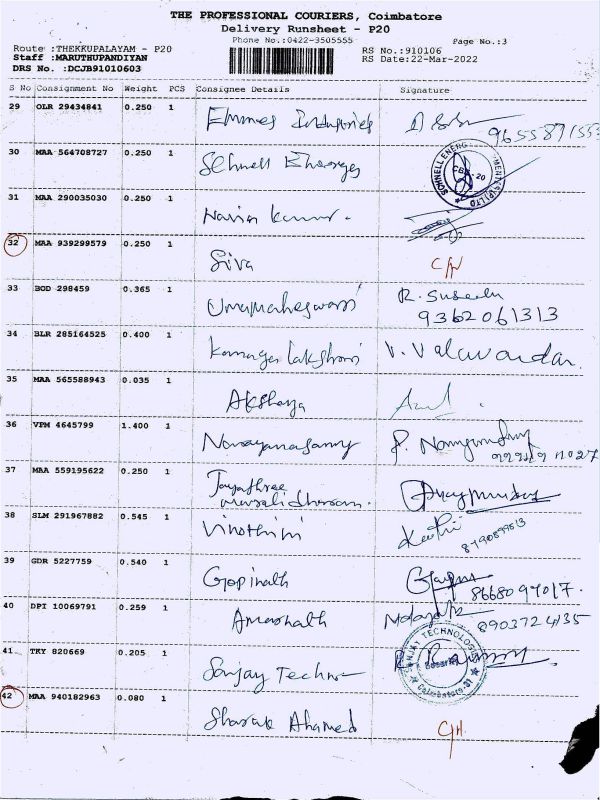 THE PROFESSIONAL COURIERS, Coimbatore
Delivery Runsheet - P20
Phone No.:0422-3505555
Page No.:3
Route :THEKKUPALAYAM - P20
RS No.:910106
Staff :MARUTHUPANDIYAN
RS Date:22-Mar-2022
DRS No. :DCJB91010603
S No Consignment No Weight PCS Consignee Details Signature
29 OLR 29434841 0.250 1 Emmes Industries
30 MAA 564708727 0.250 1 Schnell
31 MAA 290035030 0.250 1 Navin Kumar.
32 MAA 939299579 0.250 1 Siva
33 BOD 298459 0.365 1 Umamaheswari R. Suseela
9362061313
34 BLR 285164525 0.400 1 V. Valavandan.
35 MAA 565588943 0.035 1 Akshaya
36 VPM 4645799 1.400 1 Narayanasamy
37 MAA 559195622 0.250 1 Jayashree
muralidharan.
38 SLM 291967882 0.545 1 Vinothini
39 GDR 5227759 0.540 1 Gopinath
40 DPI 10069791 0.259 1 8903724135
41 TKY 820669 0.205 1 Sanjay Techno
SANJAY TECHNOLOGIES
Coimbatore
42 MAA 940182963 0.080 1 Ahamed